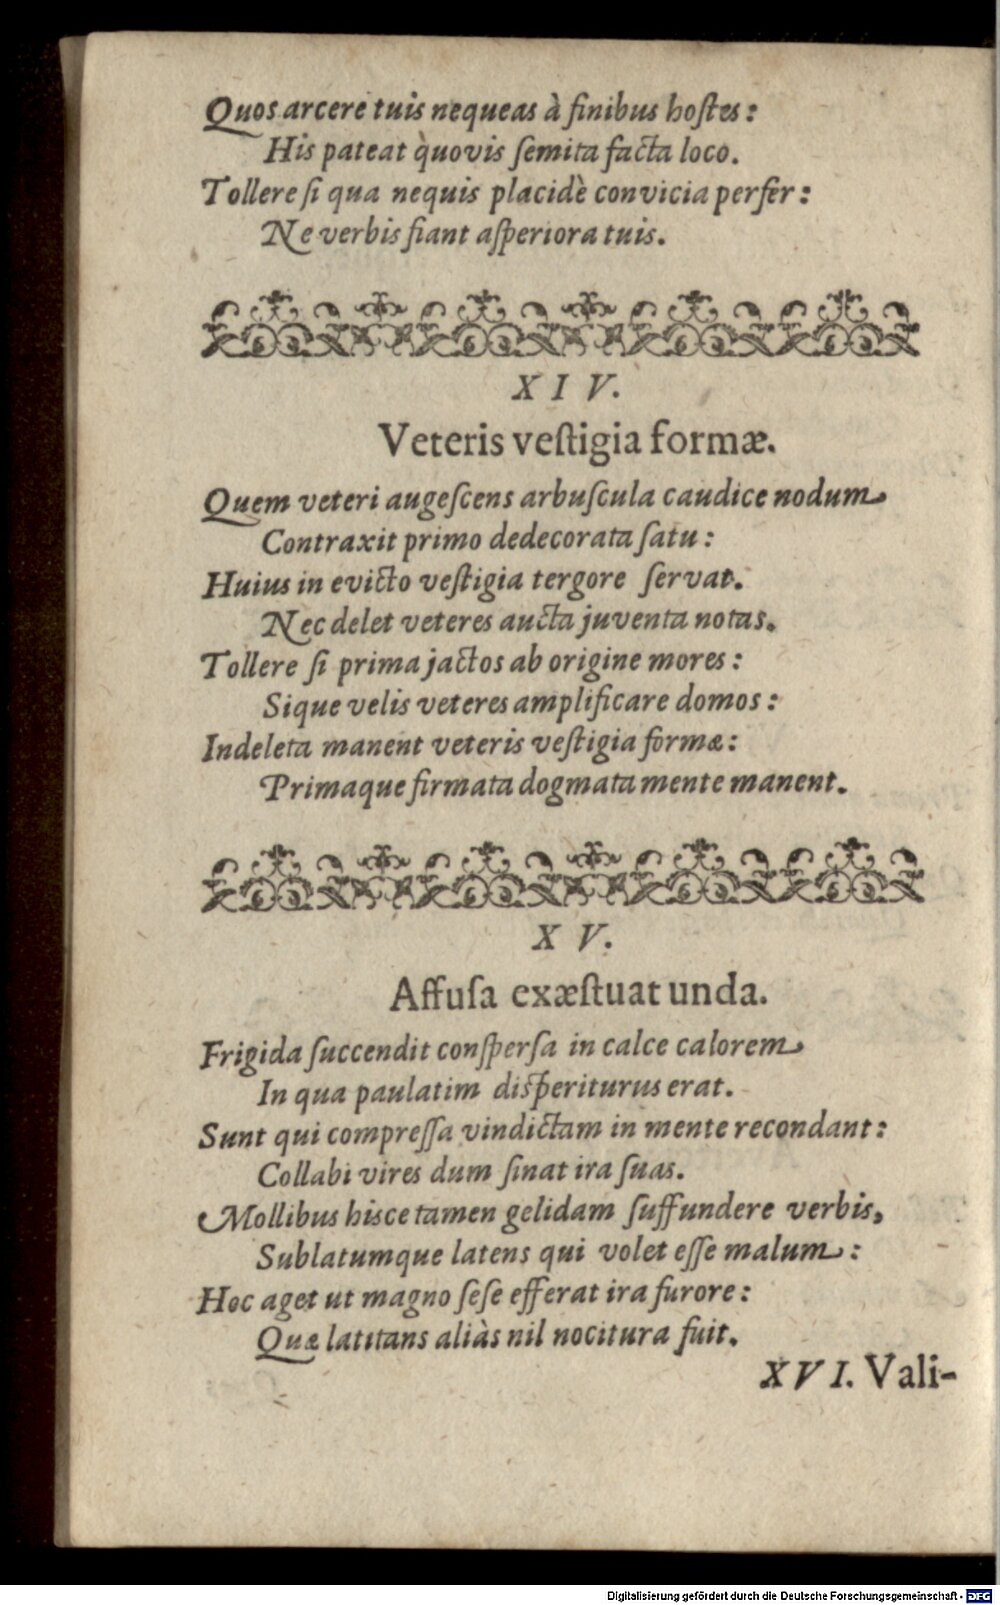 Quos arcere tuis nequeas à finibus hoſtes:
His pateat quòvis ſemita facta loco.
Tollere ſi qua nequis placidè convicia perfer:
Ne verbis fiant aſperiora tuis.
XIV.
Veteris veſtigia formæ.
Quem veteri augeſcens arbuſcula caudice nodum
Contraxit primo dedecorata ſatu:
Huius in evicto veſtigia tergore ſervat.
Nec delet veteres aucta juventa notas.
Tollere ſi prima jactos ab origine mores:
Sique velis veteres amplificare domos:
Indeleta manent veteris veſtigia formæ:
Primaque firmata dogmata mente manent.
XV.
Affuſa exæſtuat unda.
Frigida ſuccendit conſperſa in calce calorem
In qua paulatim diſperiturus erat.
Sunt qui compreſſa vindictam in mente recondant:
Collabi vires dum ſinat ira ſuas.
Mollibus hisce tamen gelidam ſuffundere verbis,
Sublatumque latens qui volet eſſe malum:
Hoc aget ut magno ſeſe efferat ira furore:
Quæ latitans aliàs nil nocitura fuit.
XVI. Vali-
Digitalisierung gefördert durch die Deutsche Forschungsgemeinschaft - DFG